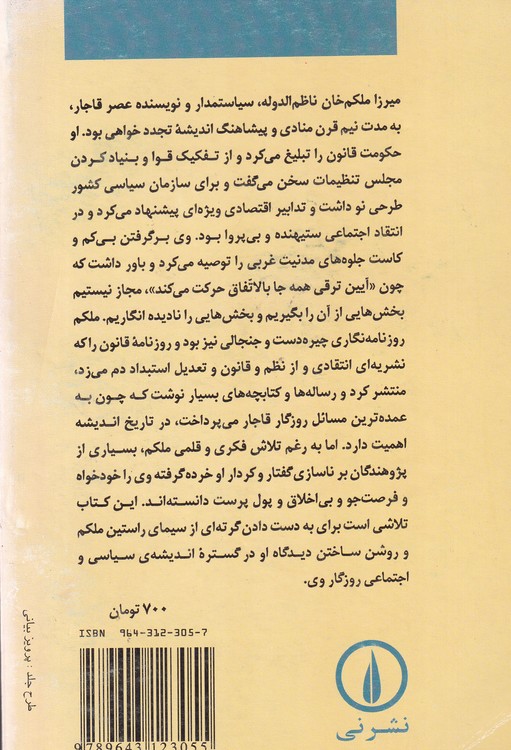 میرزا ملکم‌خان ناظم‌الدوله، سیاستمدار و نویسنده عصر قاجار،
به مدت نیم قرن منادی و پیشاهنگ اندیشۀ تجدد خواهی بود. او
حکومت قانون را تبلیغ می‌کرد و از تفکیک قوا و بنیاد کردن
مجلس تنظیمات سخن می‌گفت و برای سازمان سیاسی کشور
طرحی نو داشت و تدابیر اقتصادی ویژه‌ای پیشنهاد می‌کرد و در
انتقاد اجتماعی ستیهنده و بی‌پروا بود. وی برگرفتن بی‌کم و
کاست جلوه‌های مدنیت غربی را توصیه می‌کرد و باور داشت که
چون «آیین ترقی همه جا بالاتّفاق حرکت می‌کند»، مجاز نیستیم
بخش‌هایی از آن را بگیریم و بخش‌هایی را نادیده انگاریم. ملکم
روزنامه‌نگاری چیره‌دست و جنجالی نیز بود و روزنامۀ قانون را که
نشریه‌ای انتقادی و از نظم و قانون و تعدیل استبداد دم می‌زد،
منتشر کرد و رساله‌ها و کتابچه‌های بسیار نوشت که چون به
عمده‌ترین مسائل روزگار قاجار می‌پرداخت، در تاریخ اندیشه
اهمیت دارد. اما به رغم تلاش فکری و قلمی ملکم، بسیاری از
پژوهندگان بر ناسازی گفتار و کردار او خرده گرفته وی را خودخواه
و فرصت‌جو و بی‌اخلاق و پول پرست دانسته‌اند. این کتاب
تلاشی است برای به دست دادن گرته‌ای از سیمای راستین ملکم
و روشن ساختن دیدگاه او در گسترۀ اندیشه‌ی سیاسی و
اجتماعی روزگار وی.
۷۰۰ تومان
ISBN 964-312-305-7
9789643123055
نشرنی
طرح جلد : پرویز بیانی